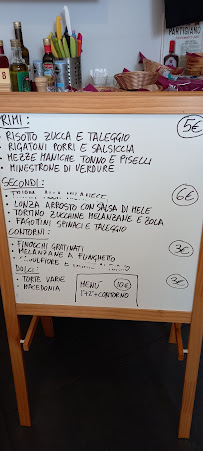 PARTIGIANO
PRIMI: 5€
• RISOTTO ZUCCA E TALEGGIO
• RIGATONI PORRI E SALSICCIA
• MEZZE MANICHE TONNO E PISELLI
• MINESTRONE DI VERDURE
SECONDI: 6€
• LONZA ARROSTO CON SALSA DI MELE
• TORTINO ZUCCHINE MELANZANE E ZOLA
• FAGOTINI SPINACI E TALEGGIO
CONTORNI: 3€
• FINOCCHI GRATINATI
• MELANZANE A FUNGHETTO
DOLCI: 3€
• TORTE VARIE
• MACEDONIA
MENÙ 10€
1+2+CONTORNO